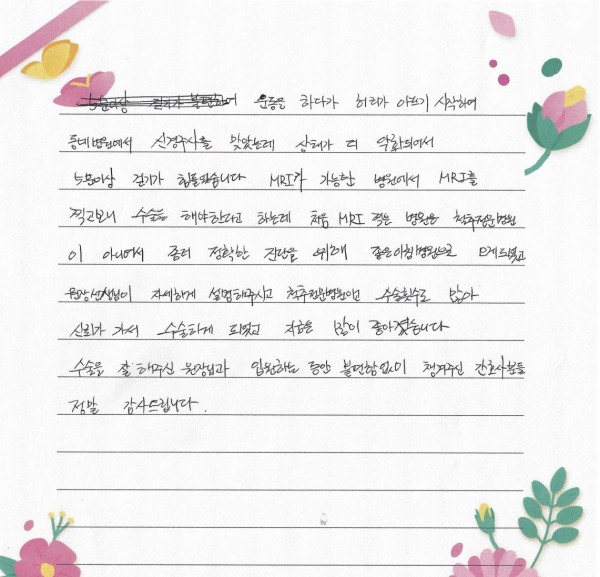 5분이상 걸기가 불편하여 운동을 하다가 허리가 아프기 시작하여
동네병원에서 신경주사를 맞았는데 상태가 더 악화되어서
5분이상 걷기가 힘들었습니다 MRI가 가능한 병원에서 MRI를
찍고보니 수술을 해야한다고 하는데 처음 MRI 찍은 병원은 척추전문병원
이 아니어서 좀더 정확한 진단을 위해 굳은아침병원으로 오게되었고
원장선생님이 자세하게 설명해주시고 척추전문병원이고 수술횟수도 많아
신뢰가 가서 수술하게 되었고 지금은 많이 좋아졌습니다
수술을 잘 해주신 원장님과 입원하는 동안 불편함없이 챙겨주신 간호사분들
정말 감사드립니다.